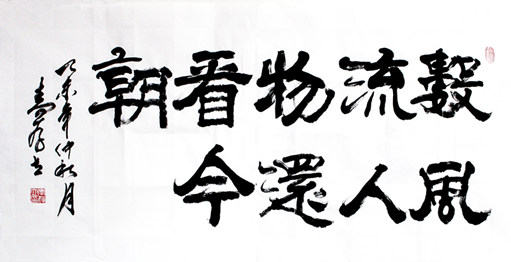 數風
流人
物還
看今
朝
乙未年仲秋月